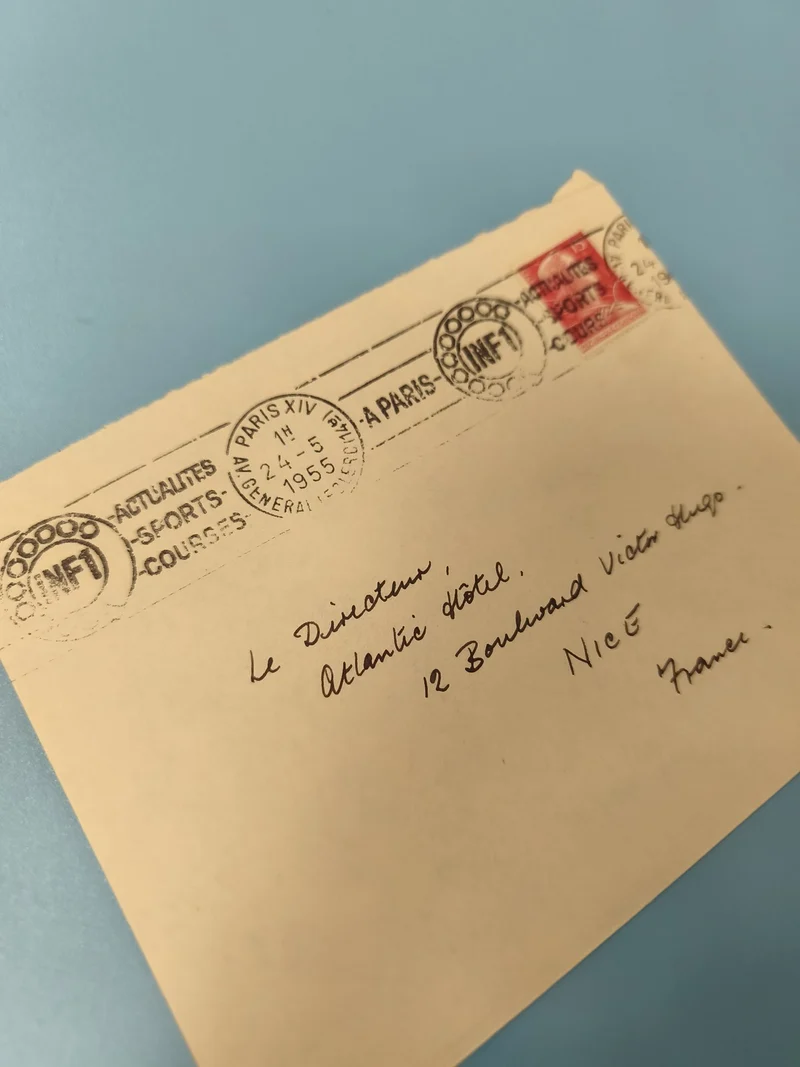 INF1
-ACTUALITES
-SPORTS-
-COURSES-
PARIS XIV (14è)
1H
24-5
1955
AV. GENERAL LECLERC
-A PARIS-
INF1
-ACTUALITES
-SPORTS
-COURSES
15
AV PARIS
24
19
Le Directeur,
Atlantic Hôtel,
12 Boulevard Victor Hugo.
NICE
France.